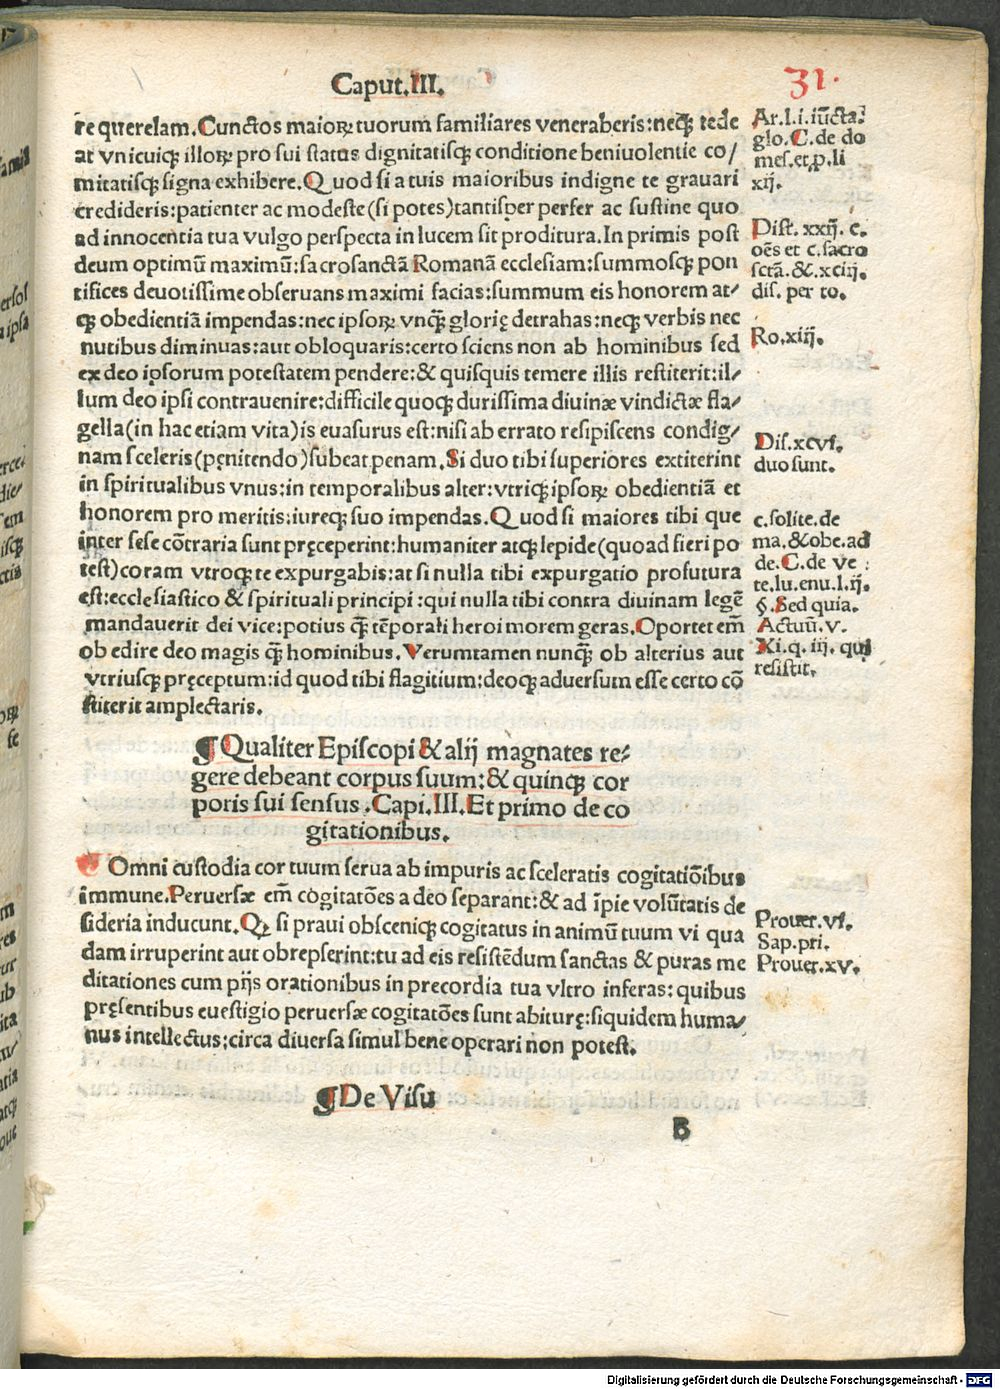 Caput.III.
31.
re querelam.Cunctos maioꝝ tuorum familiares veneraberis:neqꝫ tede
at vnicuiqꝫ illoꝝ pro sui status dignitatisqꝫ conditione beniuolentie co/
mitatisqꝫ signa exhibere.Quod si a tuis maioribus indigne te grauari
credideris:patienter ac modeste(si potes)tantisper perfer ac sustine quo
ad innocentia tua vulgo perspecta in lucem sit proditura.In primis post
deum optimū maximū:sacrosanctā Romanā ecclesiam:summosqꝫ pon
tifices deuotissime obseruans maximi facias:summum eis honorem at-
qꝫ obedientiā impendas:nec ipsoꝝ vnq̄ꝫ glorię detrahas:neqꝫ verbis nec
nutibus diminuas:aut obloquaris:certo sciens non ab hominibus sed
ex deo ipsorum potestatem pendere:& quisquis temere illis restiterit:il/
lum deo ipsi contrauenire:difficile quoqꝫ durissima diuinæ vindictæ fla/
gella(in hac etiam vita)is euasurus est:nisi ab errato resipiscens condig/
nam sceleris(pęnitendo)subeat penam.Si duo tibi superiores extiterint
in spiritualibus vnus:in temporalibus alter:vtriqꝫ ipsoꝝ obedientiā et
honorem pro meritis:iureqꝫ suo impendas.Quod si maiores tibi que
inter sese cōtraria sunt pręceperint:humaniter atqꝫ lepide(quoad fieri po
test)coram vtroqꝫ te expurgabis:at si nulla tibi expurgatio profutura
est:ecclesiastico & spirituali principi:qui nulla tibi contra diuinam legē
mandauerit dei vice:potius q̄ꝫ tēporali heroi morem geras.Oportet em̄
obedire deo magis q̄ꝫ hominibus.Verumtamen nunq̄ꝫ ob alterius aut
vtriusqꝫ pręceptum:id quod tibi flagitium:deoqꝫ aduersum esse certo cō
stiterit amplectaris.
¶Qualiter Episcopi & alij magnates re-
gere debeant corpus suum:& quinqꝫ cor
poris sui sensus.Capi.III.Et primo de co
gitationibus.
Omni custodia cor tuum serua ab impuris ac sceleratis cogitatiōibus
immune.Peruersæ em̄ cogitatōes a deo separant:& ad īpie volūtatis de
sideria inducunt.Qꝫ si praui obsceniqꝫ cogitatus in animū tuum vi qua
dam irruperint aut obrepserint:tu ad eis resistēdum sanctas & puras me
ditationes cum pijs orationibus in precordia tua vltro inferas:quibus
pręsentibus euestigio peruersæ cogitatōes sunt abiturę:siquidem huma/
nus intellectus:circa diuersa simul bene operari non potest.
¶De Visu
B
Ar.l.i.iūcta
glo.C.de do
mes.et p̱.li
xij.
Dist.xxij.c.
oēs et c.sacro
sctā.&.xciij.
dis.per to.
Ro.xiij.
Dis.xcvi.
duo sunt.
c.solite.de
ma.&obe.ad
de.C.de ve
te.iu.enu.l.ij.
§.Sed quia.
Actuū.v.
Xi.q.iij.qui
resistit.
Prouer.vi.
Sap.pri.
Prouer.xv.
Digitalisierung gefördert durch die Deutsche Forschungsgemeinschaft - DFG